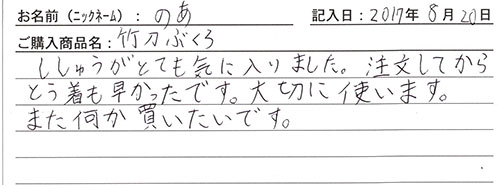 お名前（ニックネーム）： のあ 記入日：2017年 8月 20日
ご購入商品名：竹刀ぶくろ
ししゅうがとても気に入りました。注文してから
とう着も早かったです。大切に使います。
また何か買いたいです。